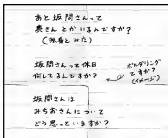 あと坂間さんって
奥さんとかいるんですか?
(独身とみた)
坂間さんって休日
何してるんですか?
ボルダリング
ですか?
(イメージ)
坂間さんは
みちおさんについて
どう思っていますか?